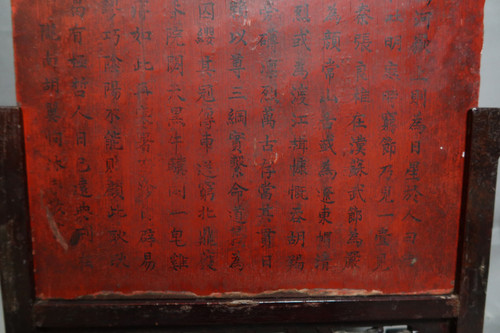 河嶽上則為日星於人曰
吐明庭時窮節乃見一一垂
秦張良椎在漢蘇武節為嚴
為顏常山舌或為遼東帽清
烈或為渡江楫慷慨吞胡羯
磅礴凜烈萬古存當其貫日
賴以尊三綱實繫命道義為
囚纓其冠傳車送窮北鼎鑊
院閟天黑牛驥同一皂雞
如此再寒暑百沴自辟易
繆巧陰陽不能賊顧此耿耿
曷有極哲人日已遠典刑在